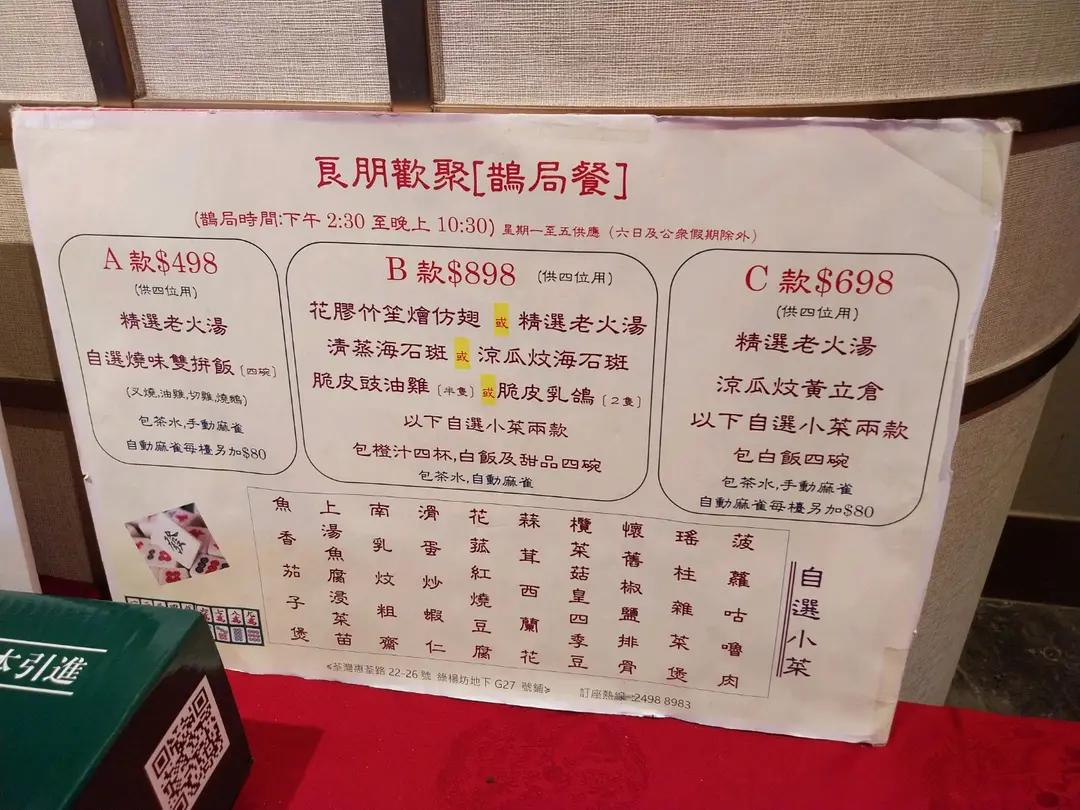 良朋歡聚[鵲局餐]
(鵲局時間:下午 2:30 至晚上 10:30) 星期一至五供應 (六日及公眾假期除外)
A 款$498
(供四位用)
精選老火湯
自選燒味雙拚飯 [四碗]
(叉燒,油雞,切雞,燒鵝)
包茶水,手動麻雀
自動麻雀每檯另加$80
B 款$898 (供四位用)
花膠竹笙燴仿翅 或 精選老火湯
清蒸海石斑 或 涼瓜炆海石斑
脆皮豉油雞 [半隻] 或 脆皮乳鴿 [2隻]
以下自選小菜兩款
包橙汁四杯,白飯及甜品四碗
包茶水,自動麻雀
C 款$698
(供四位用)
精選老火湯
涼瓜炆黃立倉
以下自選小菜兩款
包白飯四碗
包茶水,手動麻雀
自動麻雀每檯另加$80
自選小菜
菠蘿咕嚕肉
瑤柱雜菜煲
懷舊椒鹽排骨
欖菜菇皇四季豆
蒜茸西蘭花
花菇紅燒豆腐
滑蛋炒蝦仁
南乳炆粗齋
上湯魚腐浸菜苗
魚香茄子煲
發
<荃灣惠荃路 22-26 號 綠楊坊地下 G27 號鋪> 訂座熱線:2498 8983
本引進